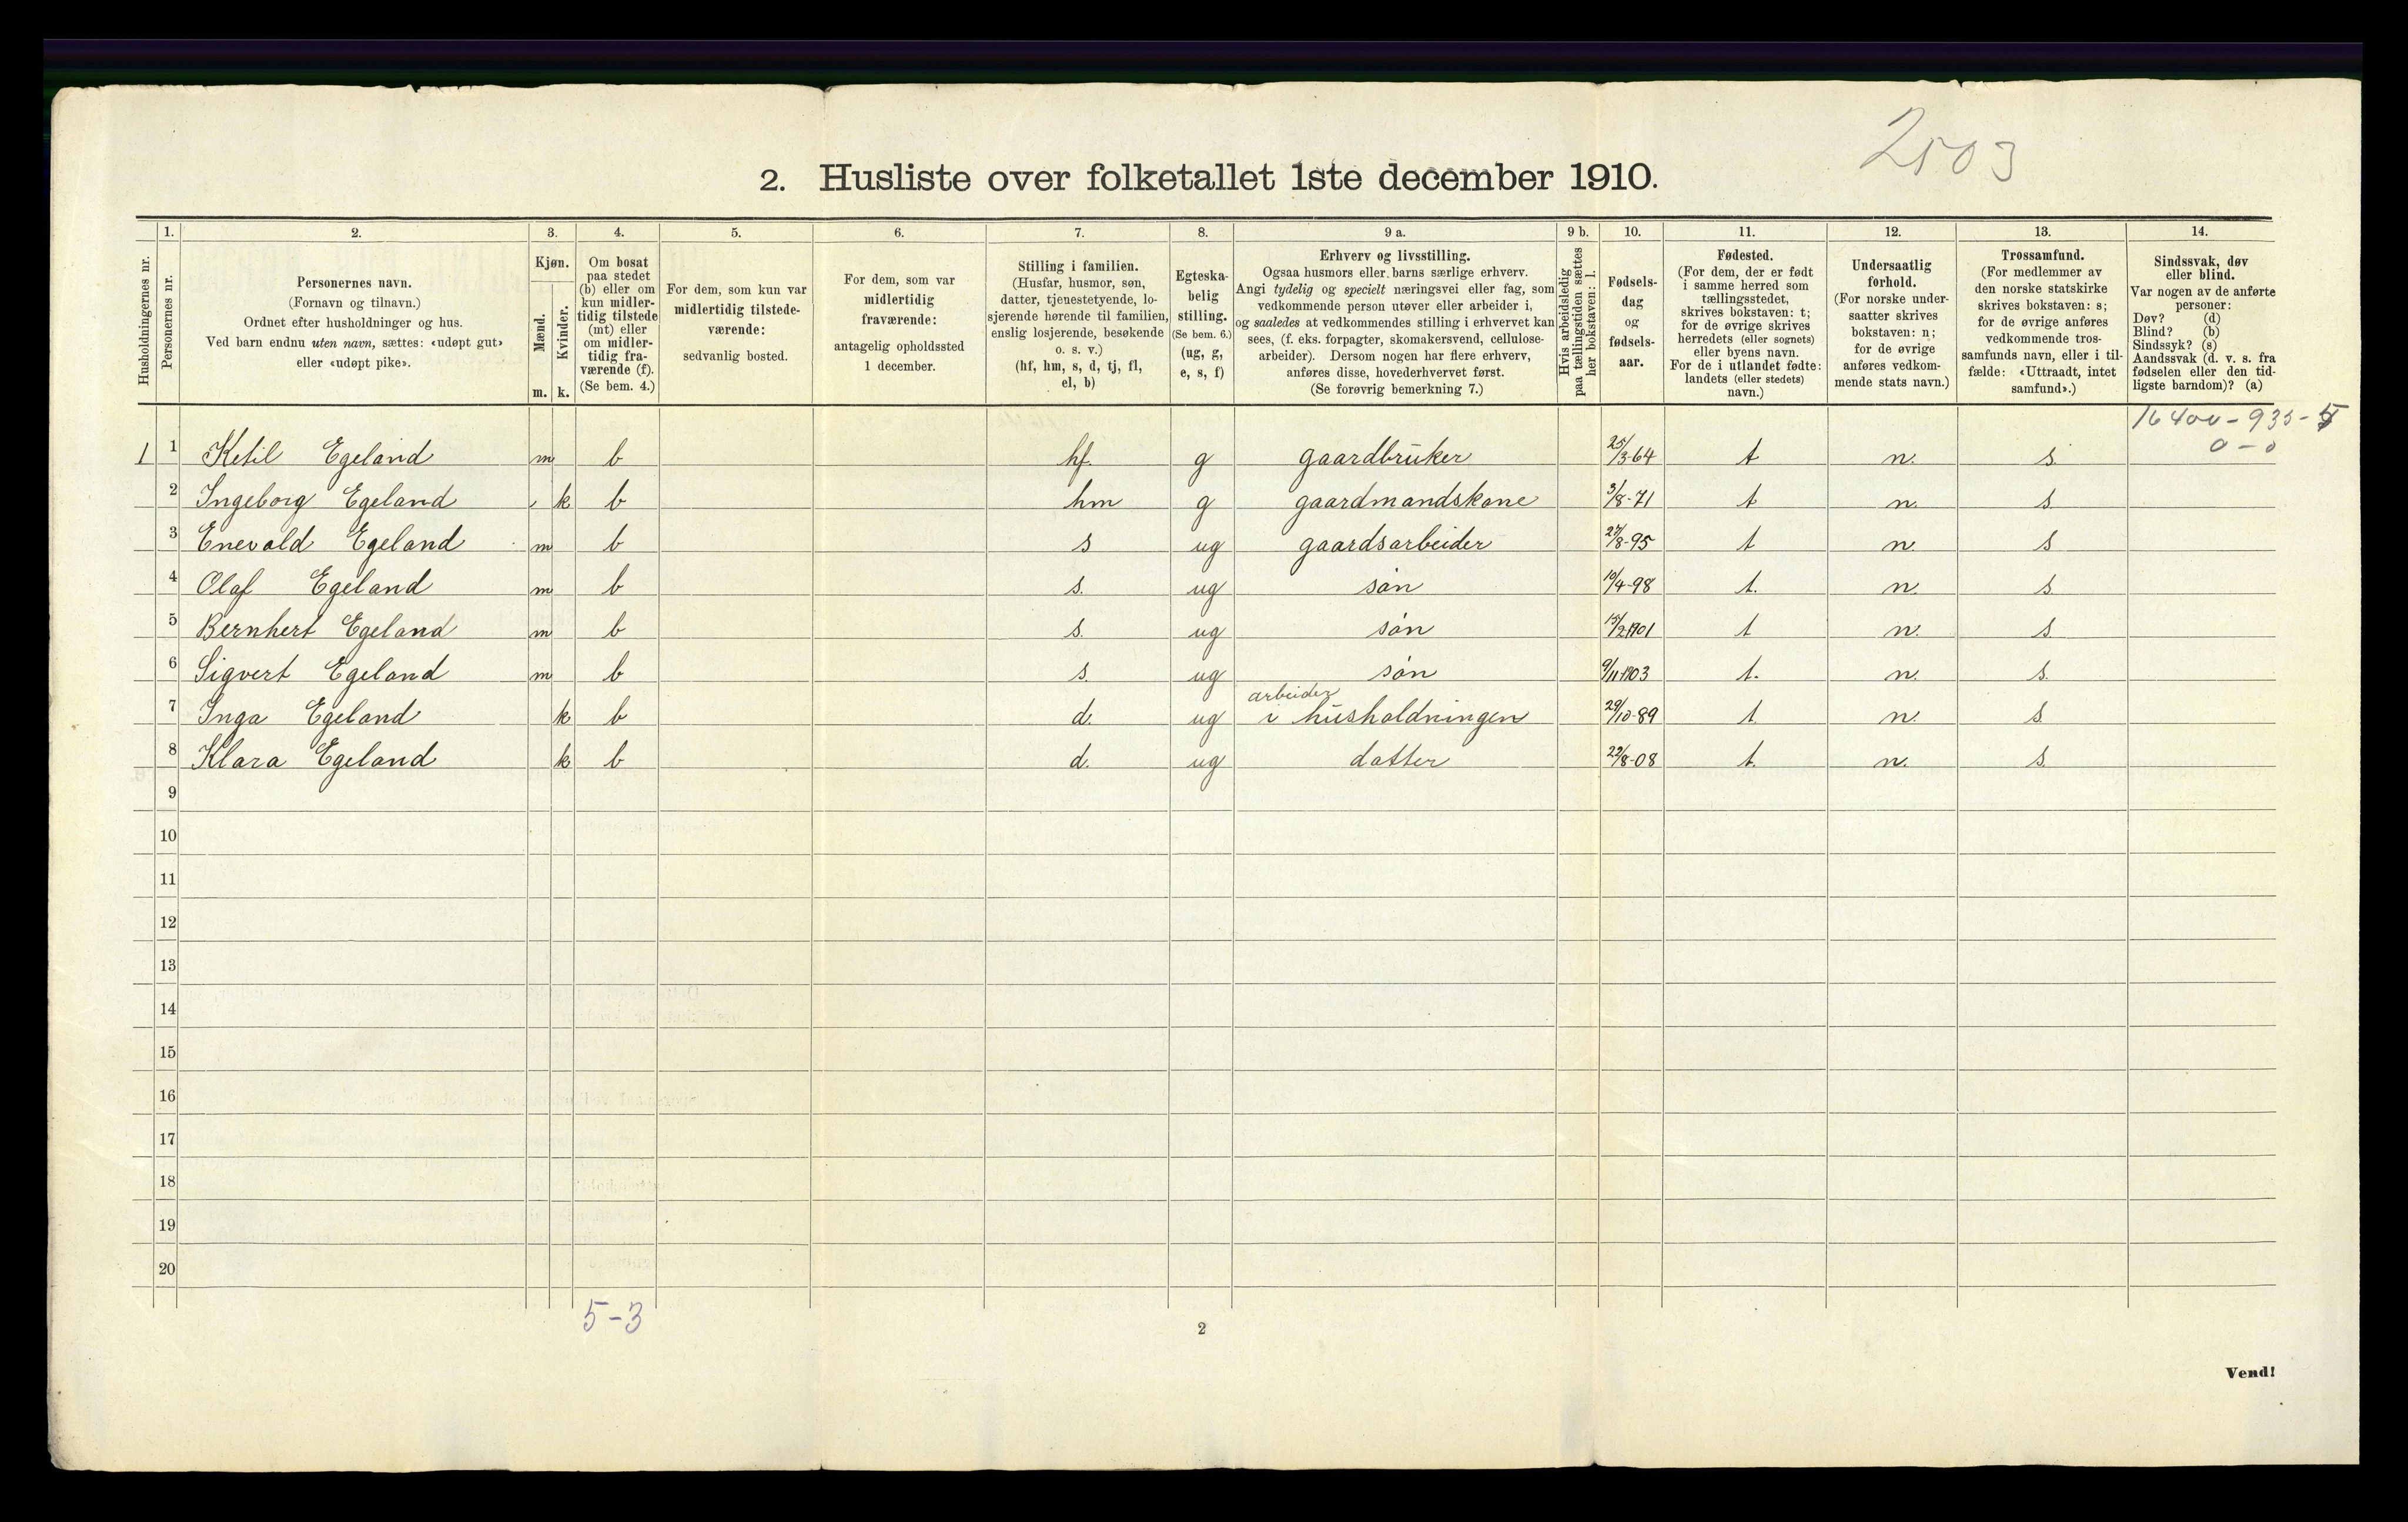 2503
2. Husliste over folketallet 1ste december 1910.
Husholdningernes nr.
1. Personernes nr.
2. Personernes navn.
(Fornavn og tilnavn.)
Ordnet efter husholdninger og hus.
Ved barn endnu uten navn, sættes: «udøpt gut»
eller «udøpt pike».
3. Kjøn.
Mænd. m.
Kvinder. k.
4. Om bosat
paa stedet
(b) eller om
kun midler-
tidig tilstede
(mt) eller
om midler-
tidig fra-
værende (f).
(Se bem. 4.)
5. For dem, som kun var
midlertidig tilstede-
værende:
sedvanlig bosted.
6. For dem, som var
midlertidig
fraværende:
antagelig opholdssted
1 december.
7. Stilling i familien.
(Husfar, husmor, søn,
datter, tjenestetyende, lo-
sjerende hørende til familien,
enslig losjerende, besøkende
o. s. v.)
(hf, hm, s, d, tj, fl,
el, b)
8. Egteska-
belig
stilling.
(Se bem. 6.)
(ug, g,
e, s, f)
9 a. Erhverv og livsstilling.
Ogsaa husmors eller barns særlige erhverv.
Angi tydelig og specielt næringsvei eller fag, som
vedkommende person utøver eller arbeider i,
og saaledes at vedkommendes stilling i erhvervet kan
sees, (f. eks. forpagter, skomakersvend, cellulose-
arbeider). Dersom nogen har flere erhverv,
anføres disse, hovederhvervet først.
(Se forøvrig bemerkning 7.)
9 b. Hvis arbeidsledig
paa tællingstiden sættes
her bokstaven: l.
10. Fødsels-
dag
og
fødsels-
aar.
11. Fødested.
(For dem, der er født
i samme herred som
tællingsstedet,
skrives bokstaven: t;
for de øvrige skrives
herredets (eller sognets)
eller byens navn.
For de i utlandet fødte:
landets (eller stedets)
navn.)
12. Undersaatlig
forhold.
(For norske under-
saatter skrives
bokstaven: n;
for de øvrige
anføres vedkom-
mende stats navn.)
13. Trossamfund.
(For medlemmer av
den norske statskirke
skrives bokstaven: s;
for de øvrige anføres
vedkommende tros-
samfunds navn, eller i til-
fælde: «Uttraadt, intet
samfund».)
14. Sindssvak, døv
eller blind.
Var nogen av de anførte
personer:
Døv? (d)
Blind? (b)
Sindssyk? (s)
Aandssvak (d. v. s. fra
fødselen eller den tid-
ligste barndom)? (a)
16400-935-5
0-0
1 1 Ketil Egeland m b hf. g gaardbruker 25/3-64 t n. s.
2 Ingeborg Egeland k b hm g gaardmandskone 3/8-71 t n. s.
3 Enevald Egeland m b s ug gaardsarbeider 27/8-95 t n. s
4 Olaf Egeland m b s. ug søn 10/4-98 t. n. s.
5 Bernhert Egeland m b s. ug søn 15/2-1901 t n. s
6 Sigvert Egeland m b s. ug søn 9/11-1903 t. n. s.
7 Inga Egeland k b d. ug arbeider i husholdningen 29/10-89 t n. s.
8 Klara Egeland k b d. ug datter 22/8-08 t. n. s.
9
10
11
12
13
14
15
16
17
18
19
20
5-3
2
Vend!